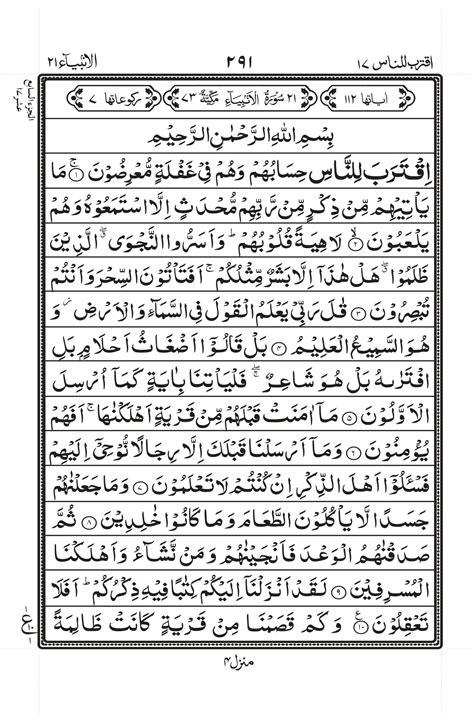 اقترب للناس ١٧
٢٩١
الانبياء ٢١
اياتها ١١٢
٢١ سُوْرَةُ الْاَنْۢبِيَآءِ مَكِّيَّةٌ ٧٣
ركوعاتها ٧
الجزء السابع عشر ١٧
بِسْمِ اللّٰهِ الرَّحْمٰنِ الرَّحِيْمِ
اِقْتَرَبَ لِلنَّاسِ حِسَابُهُمْ وَهُمْ فِيْ غَفْلَةٍ مُّعْرِضُوْنَ ۚ ١ مَا
يَاْتِيْهِمْ مِّنْ ذِكْرٍ مِّنْ رَّبِّهِمْ مُّحْدَثٍ اِلَّا اسْتَمَعُوْهُ وَهُمْ
يَلْعَبُوْنَ ۙ ٢ لَاهِيَةً قُلُوْبُهُمْ ؕ وَاَسَرُّوا النَّجْوَى ۖ الَّذِيْنَ
ظَلَمُوْا ۖ هَلْ هٰذَاۤ اِلَّا بَشَرٌ مِّثْلُكُمْ ۚ اَفَتَاْتُوْنَ السِّحْرَ وَاَنْتُمْ
تُبْصِرُوْنَ ٣ قٰلَ رَبِّيْ يَعْلَمُ الْقَوْلَ فِي السَّمَآءِ وَالْاَرْضِ ۫ وَ
هُوَ السَّمِيْعُ الْعَلِيْمُ ٤ بَلْ قَالُوْۤا اَضْغَاثُ اَحْلَامٍۭ بَلِ
افْتَرٰىهُ بَلْ هُوَ شَاعِرٌ ۖ فَلْيَاْتِنَا بِاٰيَةٍ كَمَاۤ اُرْسِلَ
الْاَوَّلُوْنَ ٥ مَاۤ اٰمَنَتْ قَبْلَهُمْ مِّنْ قَرْيَةٍ اَهْلَكْنٰهَا ۚ اَفَهُمْ
يُؤْمِنُوْنَ ٦ وَمَاۤ اَرْسَلْنَا قَبْلَكَ اِلَّا رِجَالًا نُّوْحِيْۤ اِلَيْهِمْ
فَسْـَٔلُوْۤا اَهْلَ الذِّكْرِ اِنْ كُنْتُمْ لَا تَعْلَمُوْنَ ٧ وَمَا جَعَلْنٰهُمْ
جَسَدًا لَّا يَاْكُلُوْنَ الطَّعَامَ وَمَا كَانُوْا خٰلِدِيْنَ ٨ ثُمَّ
صَدَقْنٰهُمُ الْوَعْدَ فَاَنْجَيْنٰهُمْ وَمَنْ نَّشَآءُ وَاَهْلَكْنَا
الْمُسْرِفِيْنَ ٩ لَقَدْ اَنْزَلْنَاۤ اِلَيْكُمْ كِتٰبًا فِيْهِ ذِكْرُكُمْ ؕ اَفَلَا
تَعْقِلُوْنَ ١٠ ع وَكَمْ قَصَمْنَا مِنْ قَرْيَةٍ كَانَتْ ظَالِمَةً
منزل ٤